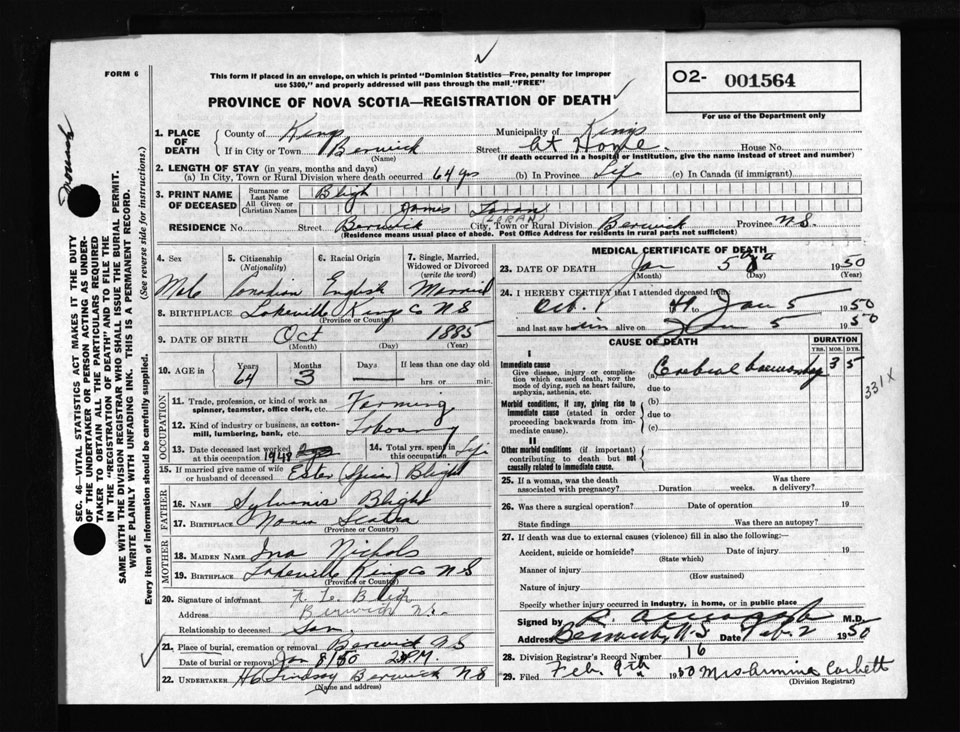 FORM 6
This form if placed in an envelope, on which is printed "Dominion Statistics—Free, penalty for improper
use $300," and properly addressed will pass through the mail "FREE"
PROVINCE OF NOVA SCOTIA—REGISTRATION OF DEATH
O2- 001564
For use of the Department only
1. PLACE OF DEATH
County of Kings Municipality of Kings
If in City or Town Berwick Street At Home. House No.
(Name) (If death occurred in a hospital or institution, give the name instead of street and number)
2. LENGTH OF STAY (in years, months and days)
(a) In City, Town or Rural Division where death occurred 64 yrs (b) In Province Life (c) In Canada (if immigrant)
3. PRINT NAME OF DECEASED
Surname or Last Name Bligh
All Given or Christian Names James Loran
(LORAN)
RESIDENCE No. Street Berwick City, Town or Rural Division Berwick Province N.S.
(Residence means usual place of abode. Post Office Address for residents in rural parts not sufficient)
4. Sex
Male
5. Citizenship
(Nationality)
Canadian
6. Racial Origin
English
7. Single, Married, Widowed or Divorced
(write the word)
Married
8. BIRTHPLACE Lakeville Kings Co N S
(Province or Country)
9. DATE OF BIRTH Oct 1885
(Month) (Day) (Year)
10. AGE in Years Months Days If less than one day old
64 3 hrs or min.
OCCUPATION
11. Trade, profession, or kind of work as spinner, teamster, office clerk, etc. Farming
12. Kind of industry or business, as cotton-mill, lumbering, bank, etc.
13. Date deceased last worked at this occupation 1948
14. Total yrs. spent in this occupation Life
15. If married give name of wife or husband of deceased Ester (Spicer) Bligh
FATHER
16. NAME Sylvanis Bligh
17. BIRTHPLACE Nova Scotia
(Province or Country)
MOTHER
18. MAIDEN NAME Ina Nichols
19. BIRTHPLACE Lakeville Kings Co N S
(Province or Country)
20. Signature of informant Bligh
Address Berwick N.S.
Relationship to deceased Son
21. Place of burial, cremation or removal Berwick N S
Date of burial or removal Jan 8/50 2 P.M.
22. UNDERTAKER H C Lindsay Berwick N S
(Name and address)
MEDICAL CERTIFICATE OF DEATH
23. DATE OF DEATH Jan 5 1950
(Month) (Day) (Year)
24. I HEREBY CERTIFY that I attended deceased from
Oct. 1 49 to Jan 5 1950
and last saw him alive on Jan 5 1950
CAUSE OF DEATH
DURATION
YRS. MOS. DYS.
I
Immediate cause
Give disease, injury or complication which caused death, not the mode of dying, such as heart failure, asphyxia, asthenia, etc.
(a) Cerebral haemorrhage 3 5
331X
due to
Morbid conditions, if any, giving rise to immediate cause (stated in order proceeding backwards from immediate cause).
(b)
due to
(c)
II
Other morbid conditions (if important) contributing to death but not causally related to immediate cause.
25. If a woman, was the death associated with pregnancy? Duration weeks. Was there a delivery?
26. Was there a surgical operation? Date of operation 19
State findings Was there an autopsy?
27. If death was due to external causes (violence) fill in also the following:
Accident, suicide or homicide? Date of injury 19
(State which)
Manner of injury
(How sustained)
Nature of injury
Specify whether injury occurred in industry, in home, or in public place
Signed by M.D.
Address Berwick, N.S Date Feb. 2 1950
28. Division Registrar's Record Number 16
29. Filed Feb. 9th 1950 Mrs Armina Corbett
(Division Registrar)
SEC. 46—VITAL STATISTICS ACT MAKES IT THE DUTY
OF THE UNDERTAKER OR PERSON ACTING AS UNDER-
TAKER TO OBTAIN ALL THE PARTICULARS REQUIRED
IN THE "REGISTRATION OF DEATH" AND TO FILE THE
SAME WITH THE DIVISION REGISTRAR WHO SHALL ISSUE THE BURIAL PERMIT.
WRITE PLAINLY WITH UNFADING INK. THIS IS A PERMANENT RECORD.
Every item of information should be carefully supplied. (See reverse side for instructions.)